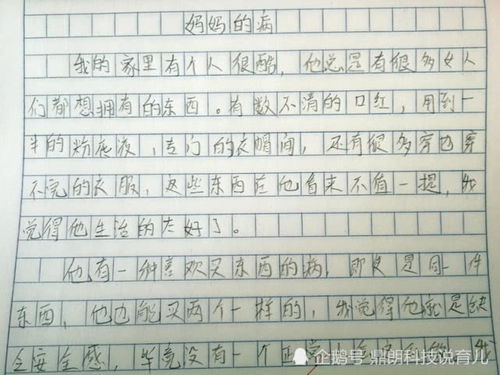 妈妈的病
我的家里有个人很酷，他总是有很多女人
们都想拥有的东西。有数不清的口红，用到一
半的粉底液，专门的衣帽间，还有很多穿也穿
不完的衣服，这些东西在他看来不值一提，我
觉得他生治的太好了。
他有一种喜欢买东西的病，即使是同一件
东西，他也能买两个一样的，我觉得他就是缺
乏安全感，毕竟没有一个正常
企鹅号 鼎朗科技说育儿